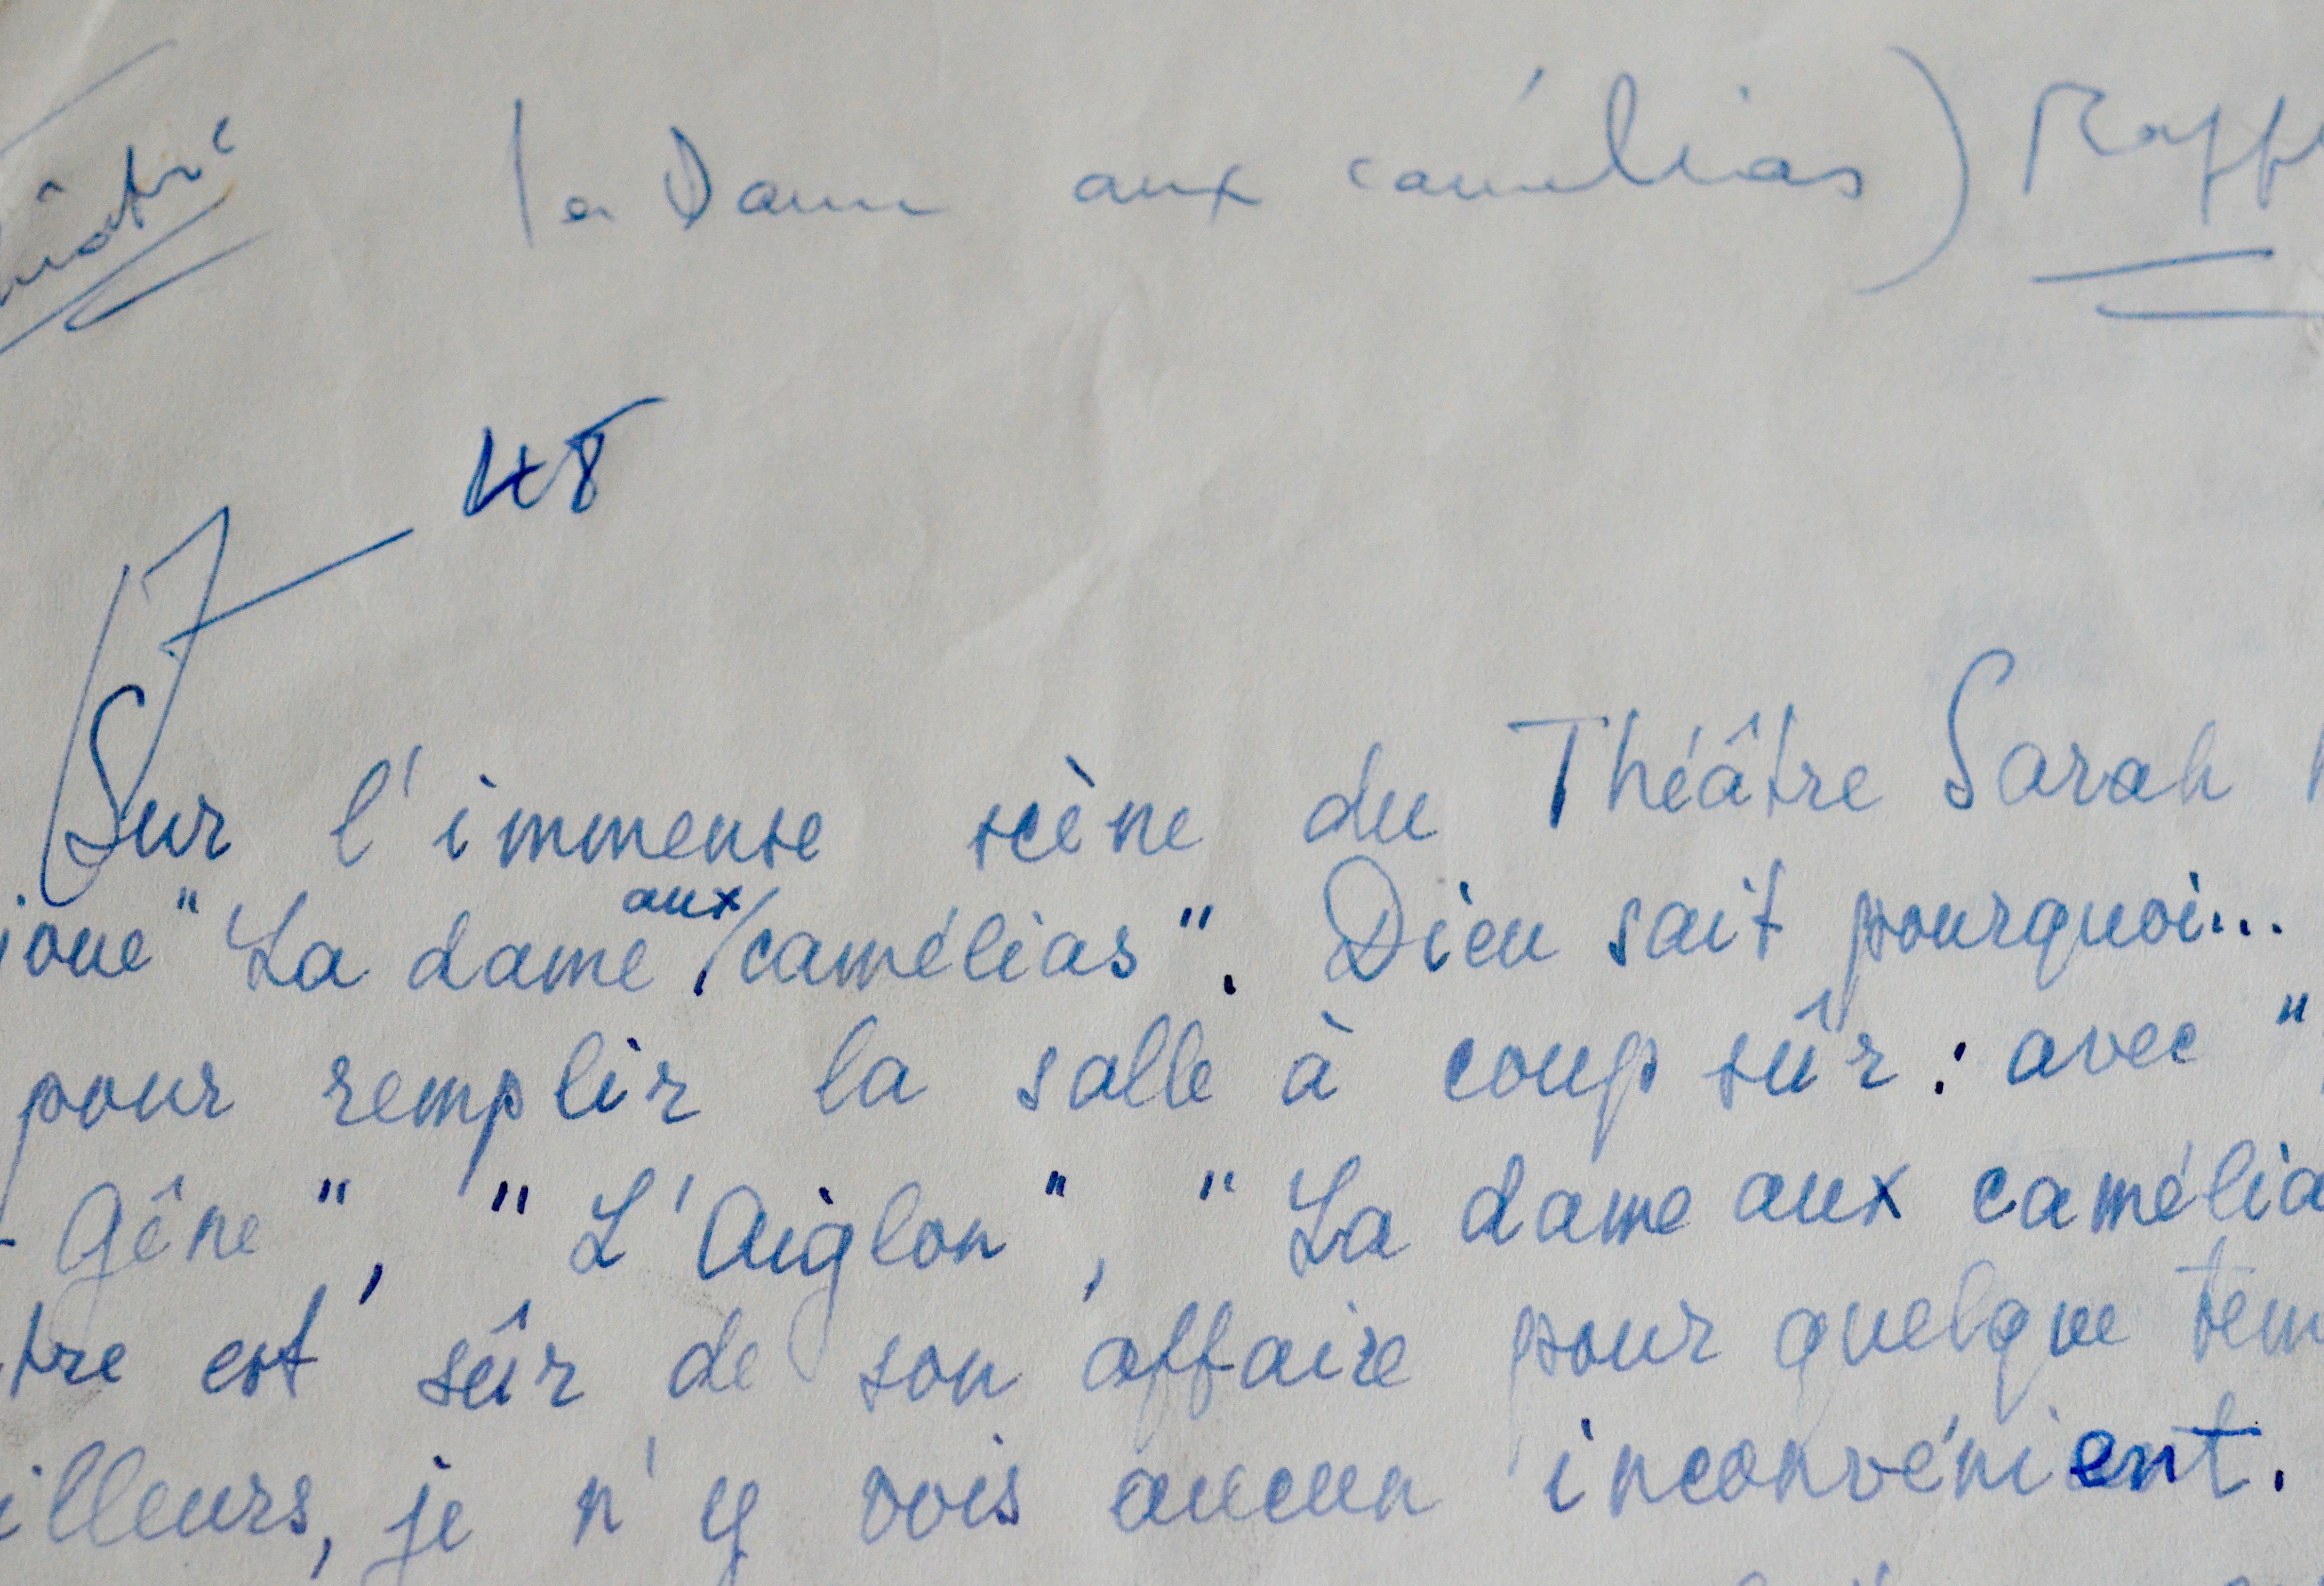 la Dame aux camélias)
48
Sur l'immense scène du Théâtre Sarah
joue "La dame aux camélias". Dieu sait pourquoi...
pour remplir la salle à coup sûr : avec "
- Gêne", "L'Aiglon", "La dame aux camélia
tre est sûr de son affaire pour quelque tem
illeurs, je n'y vois aucun inconvénient.